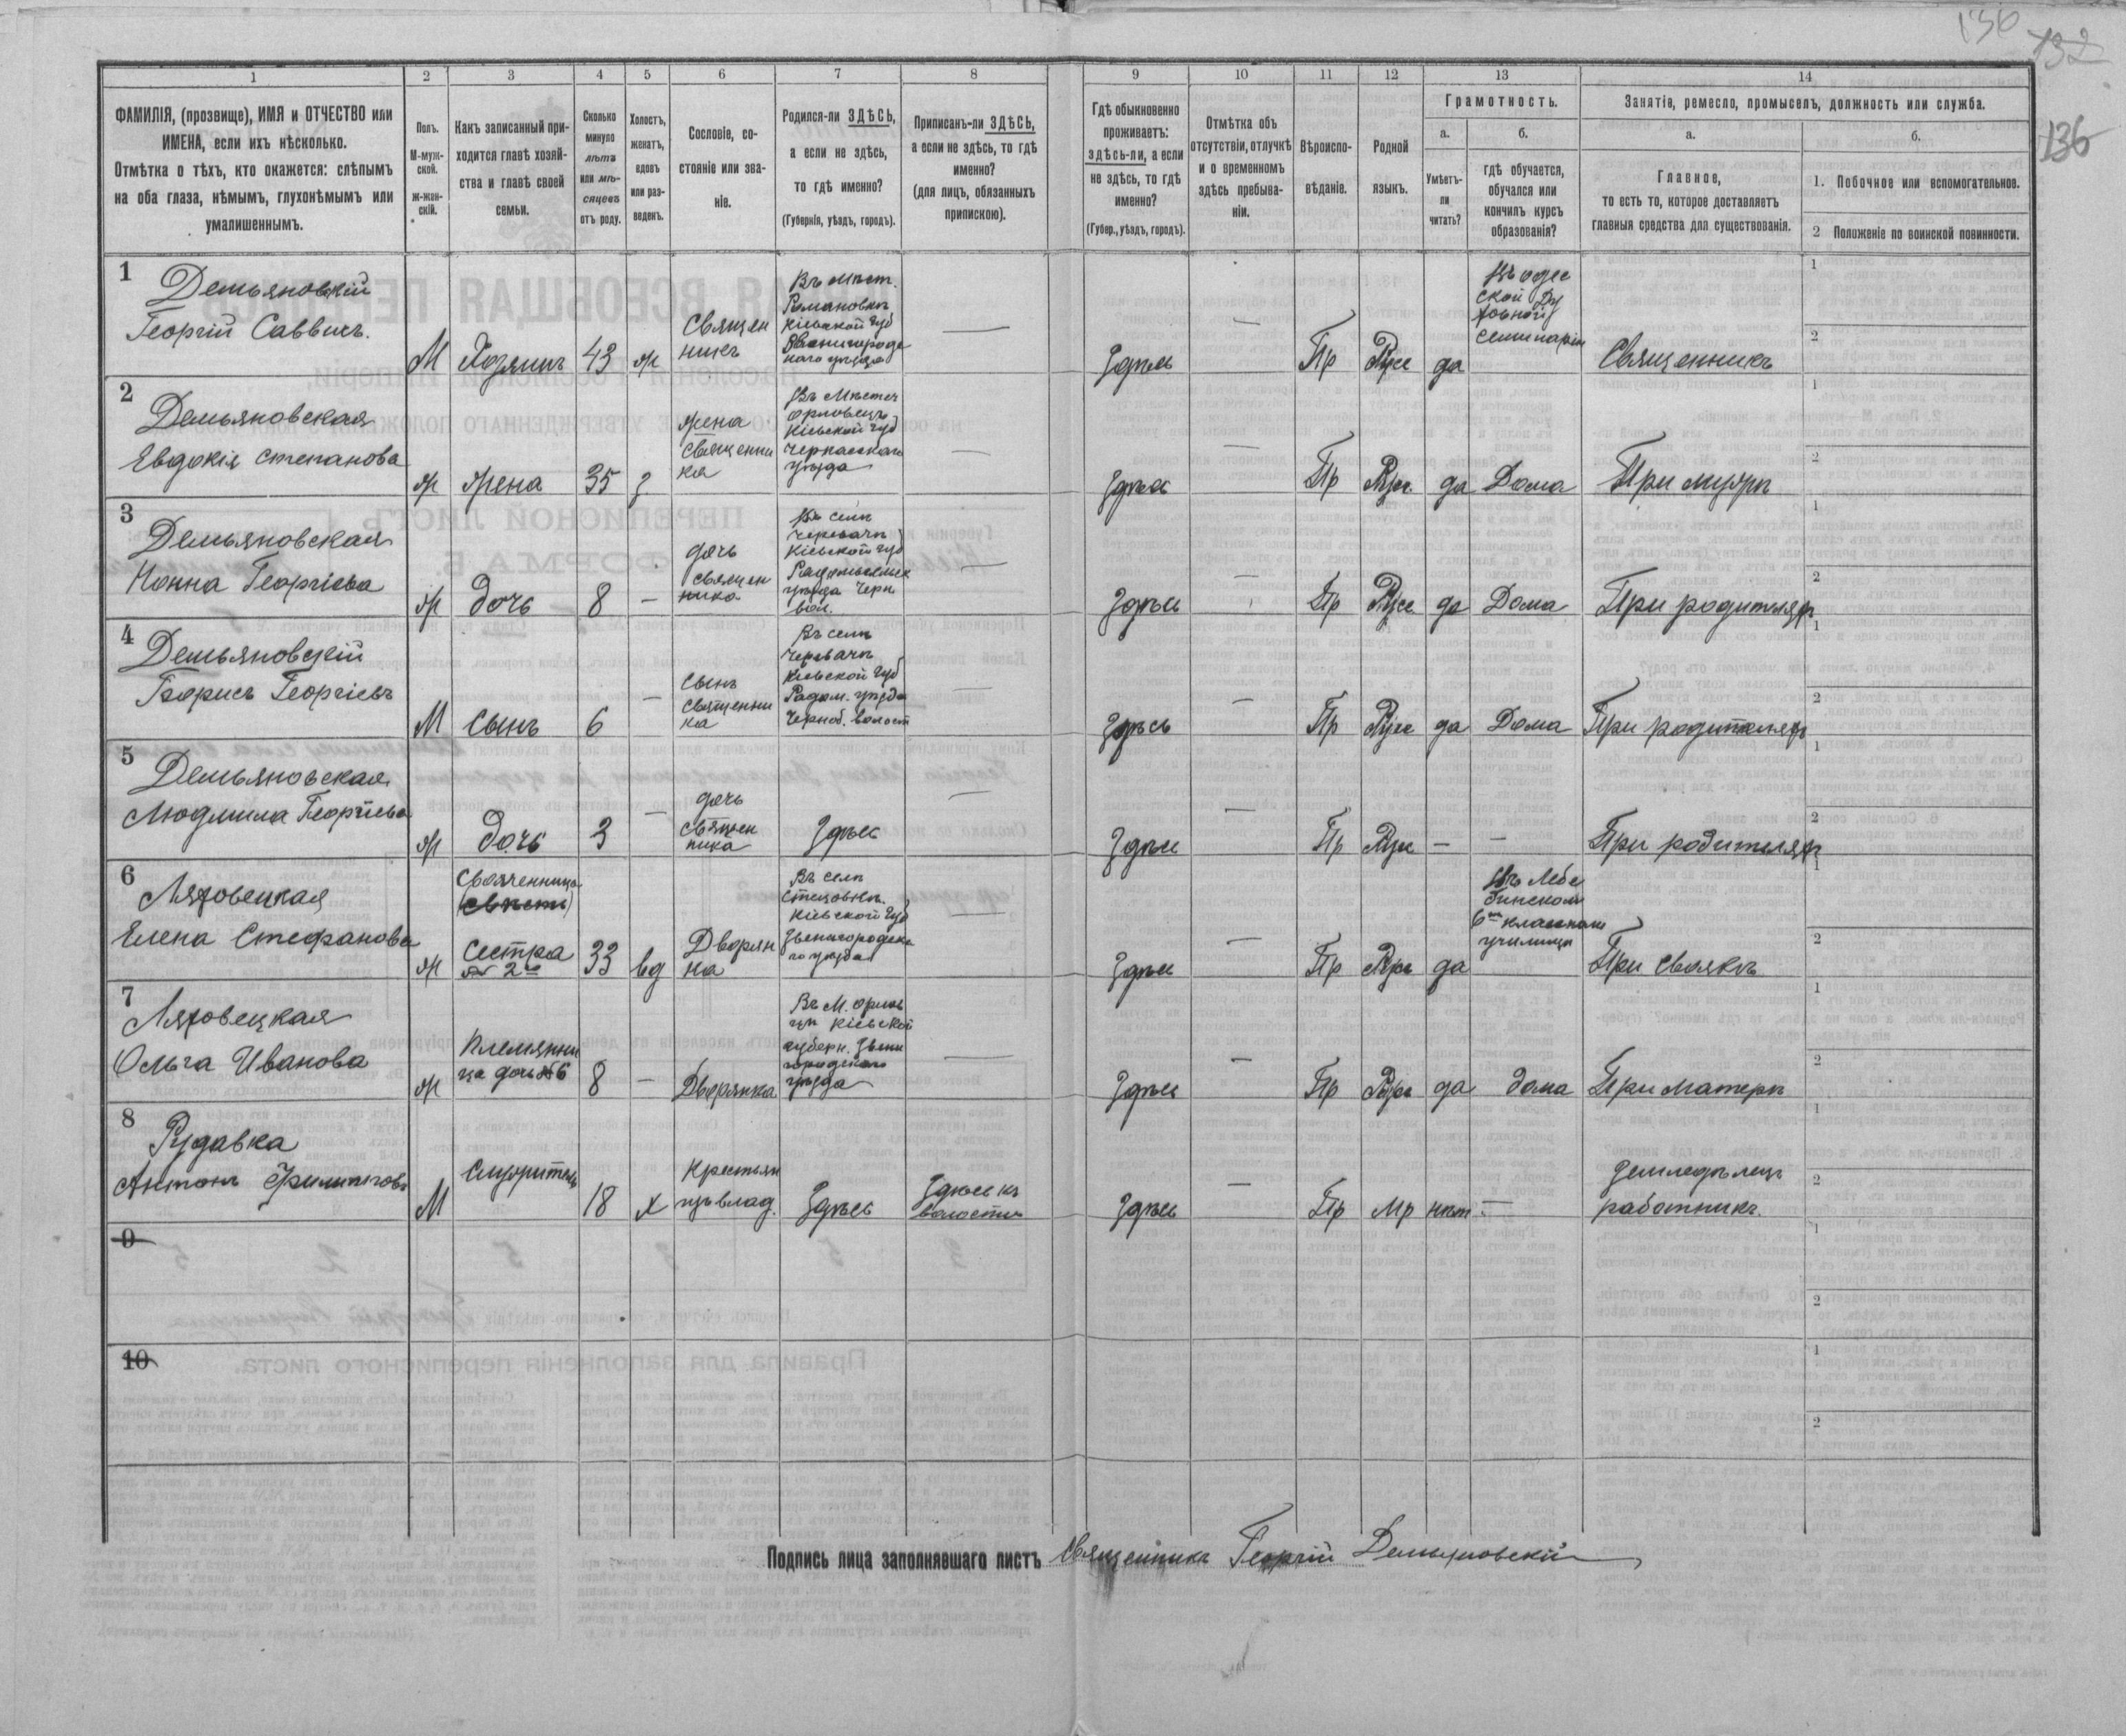 136
132
136
1 2 3 4 5 6 7 8 9 10 11 12 13 14
ФАМИЛІЯ, (прозвище), ИМЯ и ОТЧЕСТВО или
ИМЕНА, если ихъ нѣсколько.
Отмѣтка о тѣхъ, кто окажется: слѣпымъ
на оба глаза, нѣмымъ, глухонѣмымъ или
умалишеннымъ.
Полъ.
М-муж-
ской.
ж-жен-
скій.
Какъ записанный при-
ходится главѣ хозяй-
ства и главѣ своей
семьи.
Сколько
минуло
лѣтъ
или мѣ-
сяцевъ
отъ роду.
Холостъ,
женатъ,
вдовъ
или раз-
веденъ.
Сословіе, со-
стояніе или зва-
ніе.
Родился-ли ЗДѢСЬ,
а если не здѣсь,
то гдѣ именно?
(Губернія, уѣздъ, городъ).
Приписанъ-ли ЗДѢСЬ,
а если не здѣсь, то гдѣ
именно?
(для лицъ, обязанныхъ
припискою).
Гдѣ обыкновенно
проживаетъ:
здѣсь-ли, а если
не здѣсь, то гдѣ
именно?
(Губер., уѣздъ, городъ).
Отмѣтка объ
отсутствіи, отлучкѣ
и о временномъ
здѣсь пребыва-
ніи.
Вѣроиспо-
вѣданіе.
Родной
языкъ.
Грамотность.
а.
Умѣетъ-
ли
читать?
б.
гдѣ обучается,
обучался или
кончилъ курсъ
образованія?
Занятіе, ремесло, промыселъ, должность или служба.
а.
Главное,
то есть то, которое доставляетъ
главныя средства для существованія.
б.
1. Побочное или вспомогательное.
2 Положеніе по воинской повинности.
1
Демьяновскій
Георгій Саввичъ.
М Хозяинъ 43 ж
Священ
никъ
Въ Мѣст.
Романовкѣ
Кіевской губ
Звенигородс
каго уѣзда
—
Здѣсь — Пр Русс да
Въ одес
ской Ду
ховной
семинаріи
Священникъ
1
2
2
Демьяновская
Евдокія Степанова
ж жена 35 з
жена
священни
ка
Въ Мѣстеч
Орловецъ
Кіевской губ
Черкасскаго
уѣзда
—
Здѣсь — Пр Русс. да Дома При мужѣ
1
2
3
Демьяновская
Нонна Георгіева
ж дочь 8 —
дочь
священ
ника
Въ селѣ
Черевачѣ
Кіевской губ
Радомысльск
уѣзда Черн
вол.
—
Здѣсь — Пр Русс да Дома При родителях
1
2
4
Демьяновскій
Борисъ Георгіевъ
М сынъ 6 —
сынъ
священни
ка
Въ селѣ
Черевачѣ
Кіевской губ
Радом. уѣзда
Черноб. волост
—
Здѣсь — Пр Русс да Дома При родителях
1
2
5
Демьяновская
Людмила Георгіева
ж дочь 3 —
дочь
священ
ника
Здѣсь —
Здѣсь — Пр Русс — — При родителях
1
2
6
Ляховецкая
Елена Стефанова
ж
Свояченница
Сестра
№ 2го
33 вд
Дворян
ка
Въ селѣ
Стецовкѣ
Кіевской губ
Звенигородска
го уѣзда
—
Здѣсь — Пр Русс да
Въ Лебе
динском
6ти классном
училищѣ
При своякѣ
1
2
7
Ляховецкая
Ольга Иванова
ж
Племянни
ца дочь №6
8 — Дворянка
Въ М. Орлов
цѣ Кіевской
губерн. Звени
городскаго
уѣзда
—
Здѣсь — Пр Русс да дома При матери
1
2
8
Рудавка
Антонъ Филиповъ
М Служитель 18 х
Крестьян
изъ влад.
Здѣсь
Здѣсь къ
волости
Здѣсь — Пр Мр нѣт —
Земледѣлецъ
работникъ.
1
2
9
1
2
10
1
2
Подпись лица заполнявшаго листъ Священникъ Георгій Демьяновскій